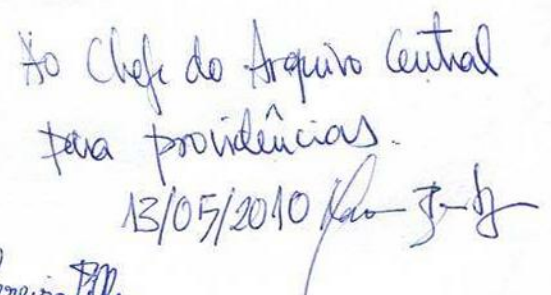 Ao Chefe do Arquivo Central
para providências.
13/05/2010